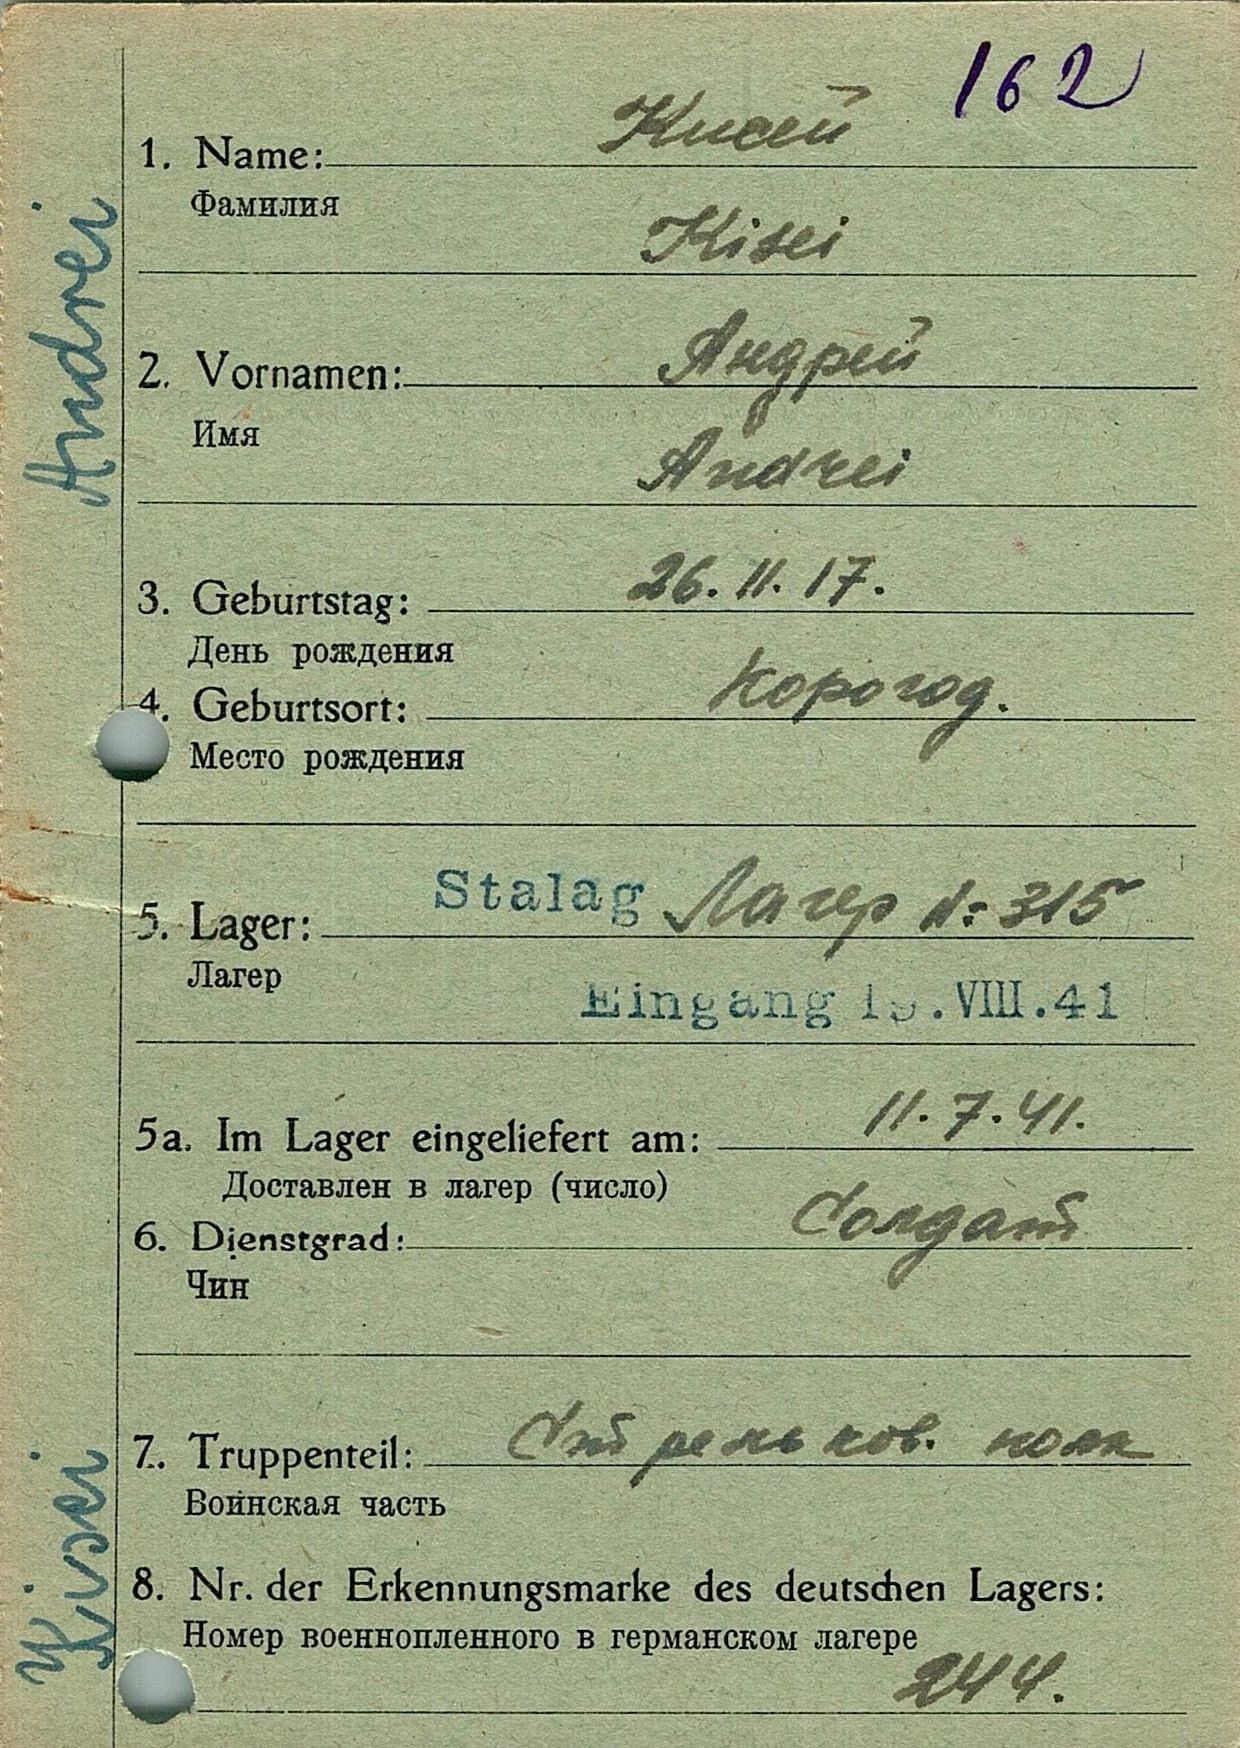 162
1. Name: Кисей
Фамилия
Kisei
2. Vornamen: Андрей
Имя
Andrei
3. Geburtstag: 26.11.17.
День рождения
4. Geburtsort: Корогод.
Место рождения
5. Lager: Stalag Лагер №315
Лагер
Eingang .VIII.41
5a. Im Lager eingeliefert am: 11.7.41.
Доставлен в лагер (число)
6. Dienstgrad: Солдат
Чин
7. Truppenteil: Стрельков. полк
Воинская часть
8. Nr. der Erkennungsmarke des deutschen Lagers:
Номер военнопленного в германском лагере
244.
Kisei Andrei